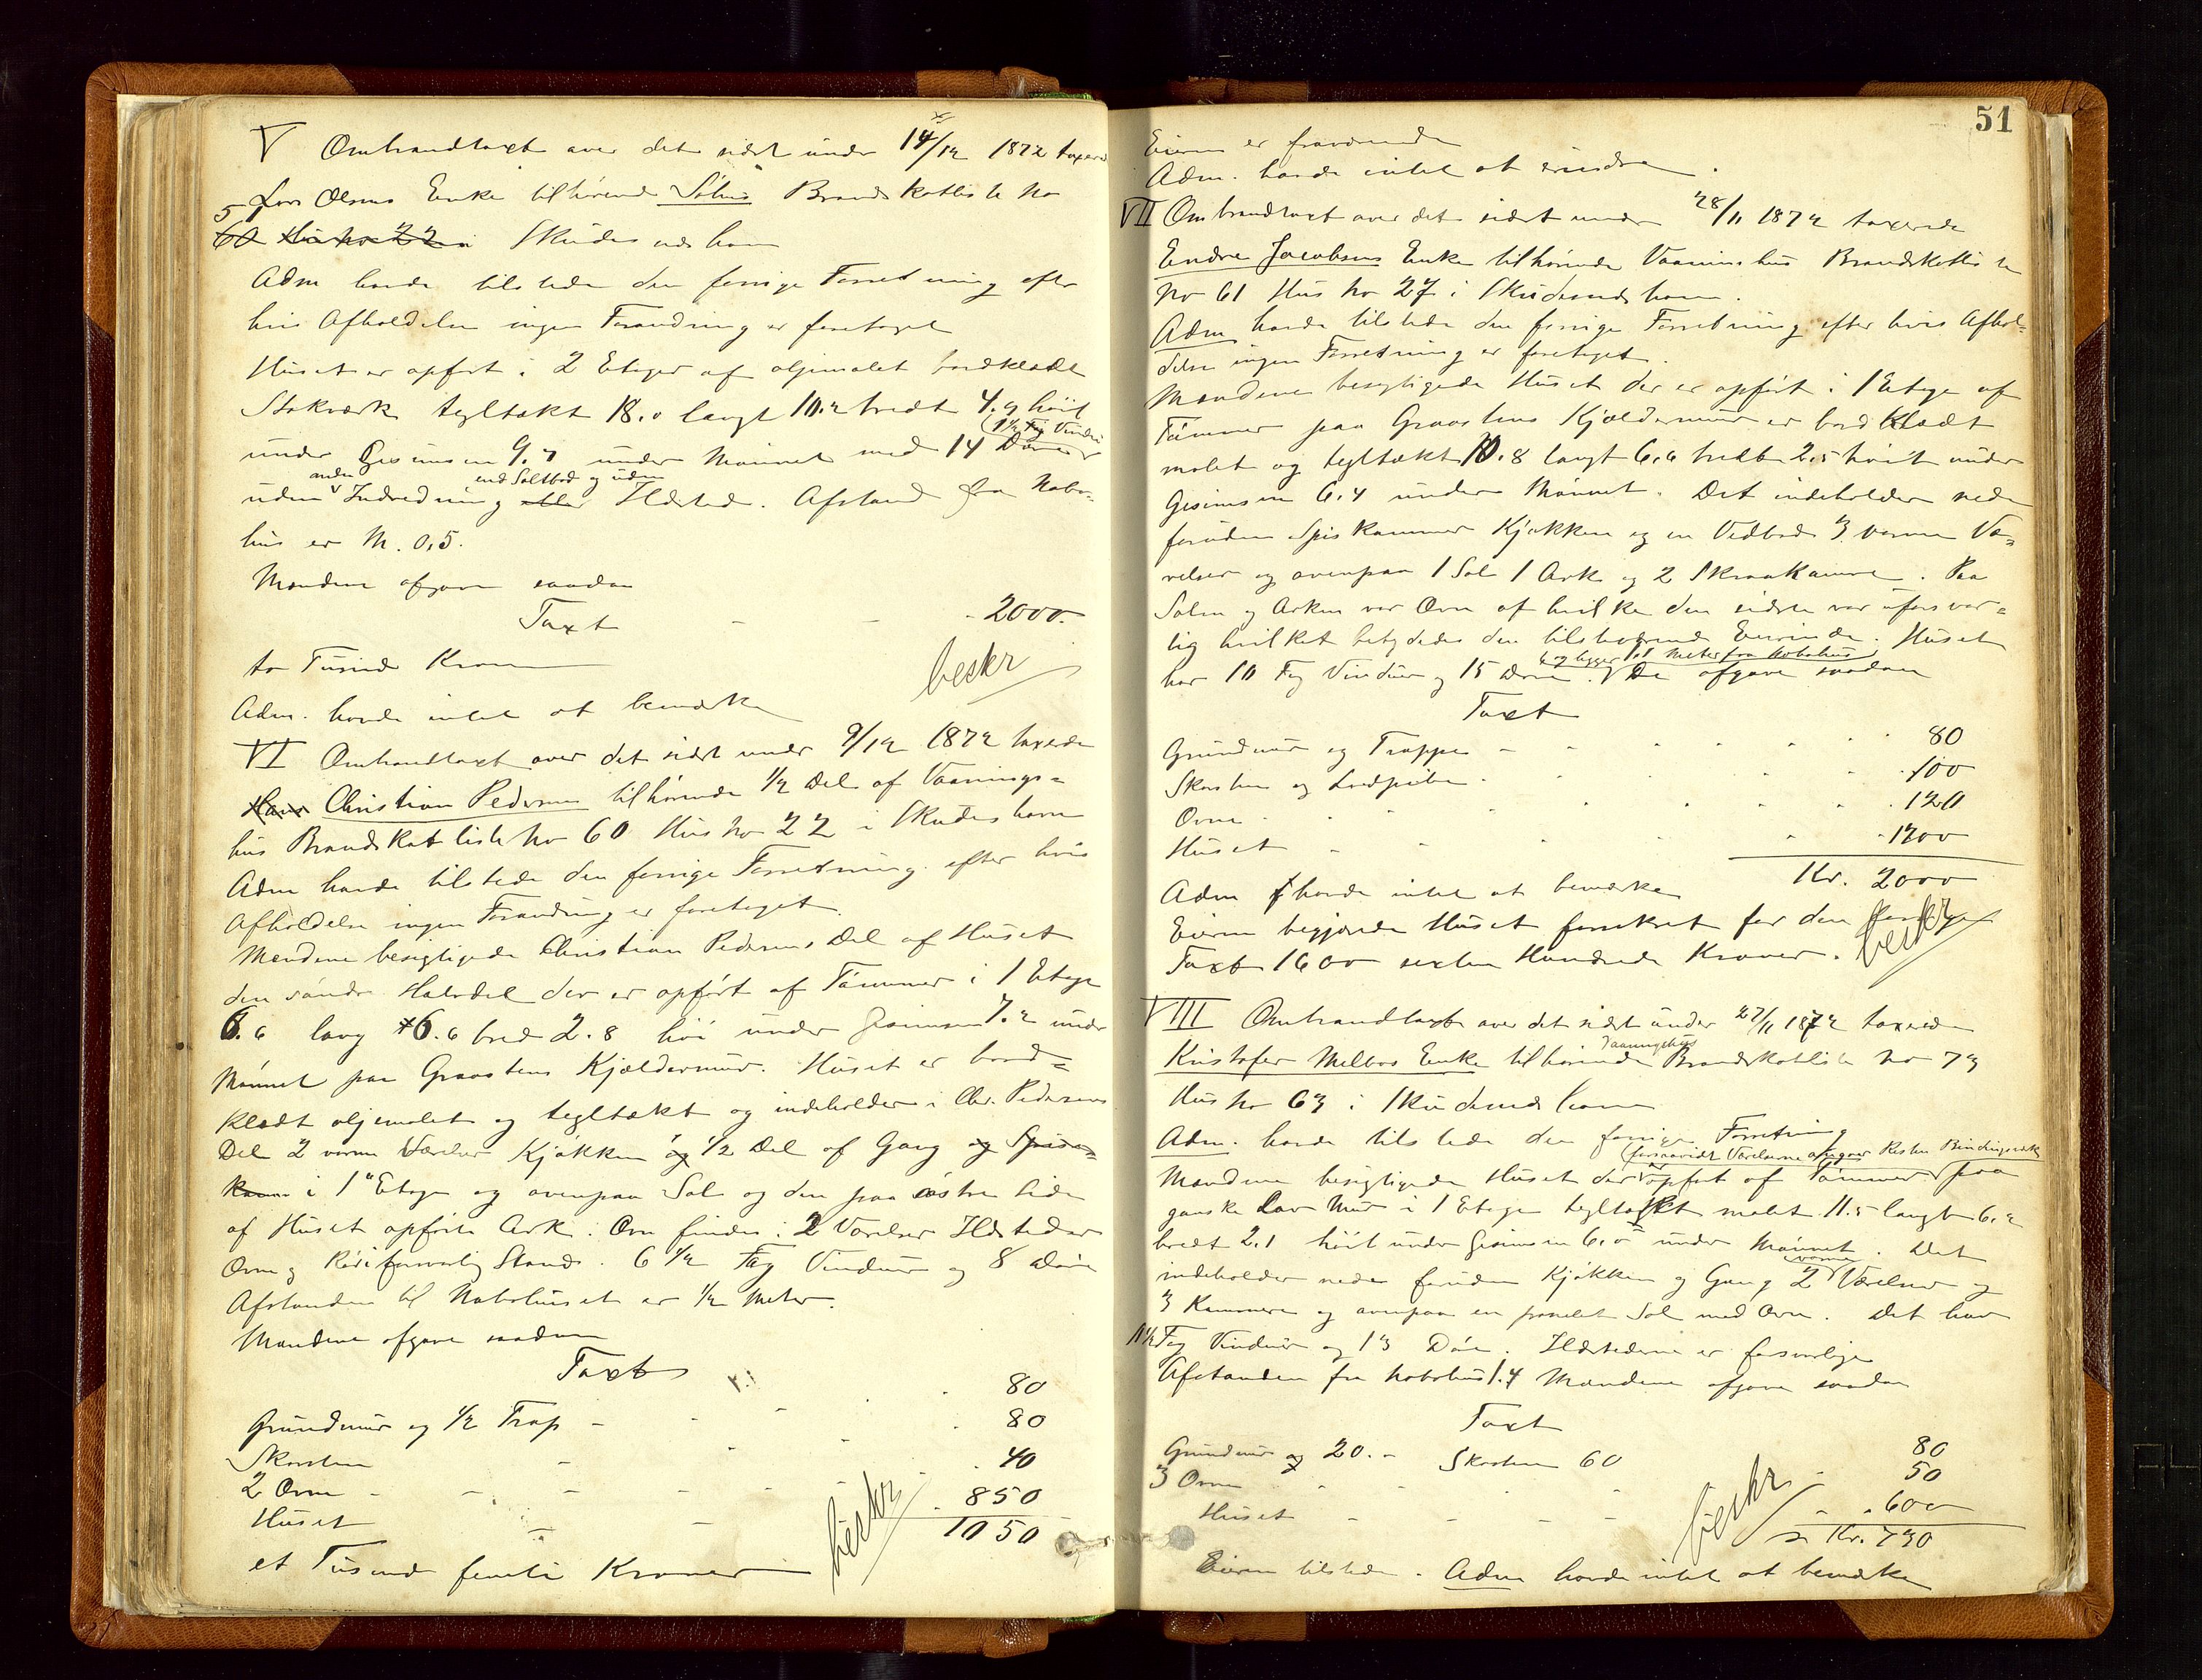 V Ombrandtaxt over det sidst under 14/12 1872 taxerede
Lars Olsens Enke tilhørende Søhus Brandskatliste No
5 60 Hus No 22 i Skudesneshavn
Adm havde tilstede den forrige Forretning efter
hvis Afholdelse ingen Forandring er foretaget
Huset er opført i 2 Etager af oljemalet bordklædt
Stokværk tegltækt 18.0 langt 10.2 bredt 4.9 høit
(1½ Fag Vindu
under Gesimsen 9.7 under Mønnet med 14 Døre
anden end Saltbod og uden
uden Indredning eller Ildsted. Afstand fra Nabo-
hus er M. 0,5.
Mændene afgave saadan
Taxt - - - 2000.
to Tusinde Kroner
beskr
Adm. havde intet at bemærke
VI Ombrandtaxt over det sidst under 9/12 1872 taxerede
Hans Christian Pedersen tilhørende ½ Del af Vaanings=
hus Brandskatliste No 60 Hus No 22 i Skudeshavn
Adm havde tilstede den forrige Forretning efter hvis
Afholdelse ingen Forandring er foretaget.
Mændene besigtigede Christian Pedersens Del af Huset
den søndre Halvdel der er opført af Tømmer i 1 Etage
6.6 lang 6.6 bred 2.8 høi under Gesimsen 7.2 under
Mønnet paa Graastens Kjældermur. Huset er bord=
klædt oljemalet og tegltækt og indeholder i Chr. Pedersens
Del 2 varme Værelser Kjøkken og 1/2 Del af Gang og Spise=
kam i 1ste Etage og ovenpaa Sal og den paa østre Side
af Huset opførte Ark. Ovn findes i 2 Værelser Ildsteder
Ovne og Rør i forsvarlig Stand. 6 ½ Fag Vinduer og 8 Døre
Afstanden til Nabohuset er ½ Meter.
Mændene afgave saadan
Taxt
Grundmur og ½ Trap - - - 80
Skorsten - - - 80
2 Ovne - - - 40
Huset - - 850
beskr
1050
et Tusinde femti Kroner
51
Eieren er fraværende
Adm. havde intet at erindre.
VII Ombrandtaxt over det sidst under 28/11 1872 taxerede
Endre Jacobsens Enke tilhørende Vaaningshus Brandskatliste
No 61 Hus No 27 i Skudesneshavn.
Adm havde tilstede den forrige Forretning efter hvis Afhol=
delse ingen Forretning er foretaget.
Mændene besigtigede Huset der er opført i 1 Etage af
Tømmer paa Graastens Kjældermur er bordklædt
malet og tegltækt 10.8 langt 6.6 bredt 2.5 høit under
Gesimsen 6.4 under Mønnet. Det indeholder nede
foruden Spiskammer Kjøkken og en Vedbod 3 varme Væ=
relser og ovenpaa 1 Sal 1 Ark og 2 Skraakamre. Paa
Salen og Arken var Ovn af hvilke den sidste var uforsvar=
lig hvilket betydedes den tilstedværende Eierinde. Huset
og ligger 1.1 Meter fra Nabohus
har 10 Fag Vinduer og 15 Døre. De afgave saadan
Taxt
Grundmur og Trappe - - - 80
Skorsten og Lodpibe - - - 100
Ovne - - - 120
Huset - - - 1700
Kr. 2000
Adm havde intet at bemærke
Eieren begjærede Huset forsikret for den forrige
Taxt 1600 sexten Hundrede Kroner.
beskr
VIII Ombrandtaxt over det sidst under 27/11 1872 taxerede
Vaaningshus
Kristofer Melbos Enke tilhørende Brandskatliste No 73
Hus No 63 i Skudesneshavn
Adm. havde tilstede den forrige Forretning
(forsaavidt Værelserne angaar Resten Bindingsværk
Mændene besigtigede Huset der er opført af Tømmer paa
ganske lav Mur i 1 Etage tegltækt malet 11.5 langt 6.2
bredt 2.1 høit under Gesimsen 6.0 under Mønnet. Det
varme
indeholder nede foruden Kjøkken og Gang 2 Værelser og
3 Kammere og ovenpaa en panelet Sal med Ovn. Det har
11½ Fag Vinduer og 13 Døre. Ildstederne er forsvarlige
Afstanden fra Nabohus 1.4 Mændene afgave saadan
Taxt
Grundmur og 20. - Skorsten 60 80
3 Ovne - - - 50
Huset - - - 600
beskr
Kr. 730
Eieren tilstede. Adm havde intet at bemærke